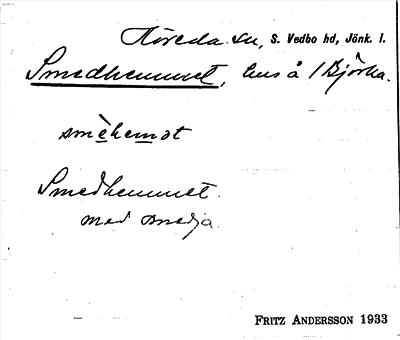 Höreda sn, S. Vedbo hd, Jönk. l.
Smedhemmet, hus å 1 Björka.
smèhemət
Smedhemmet.
med smedja
FRITZ ANDERSSON 1933